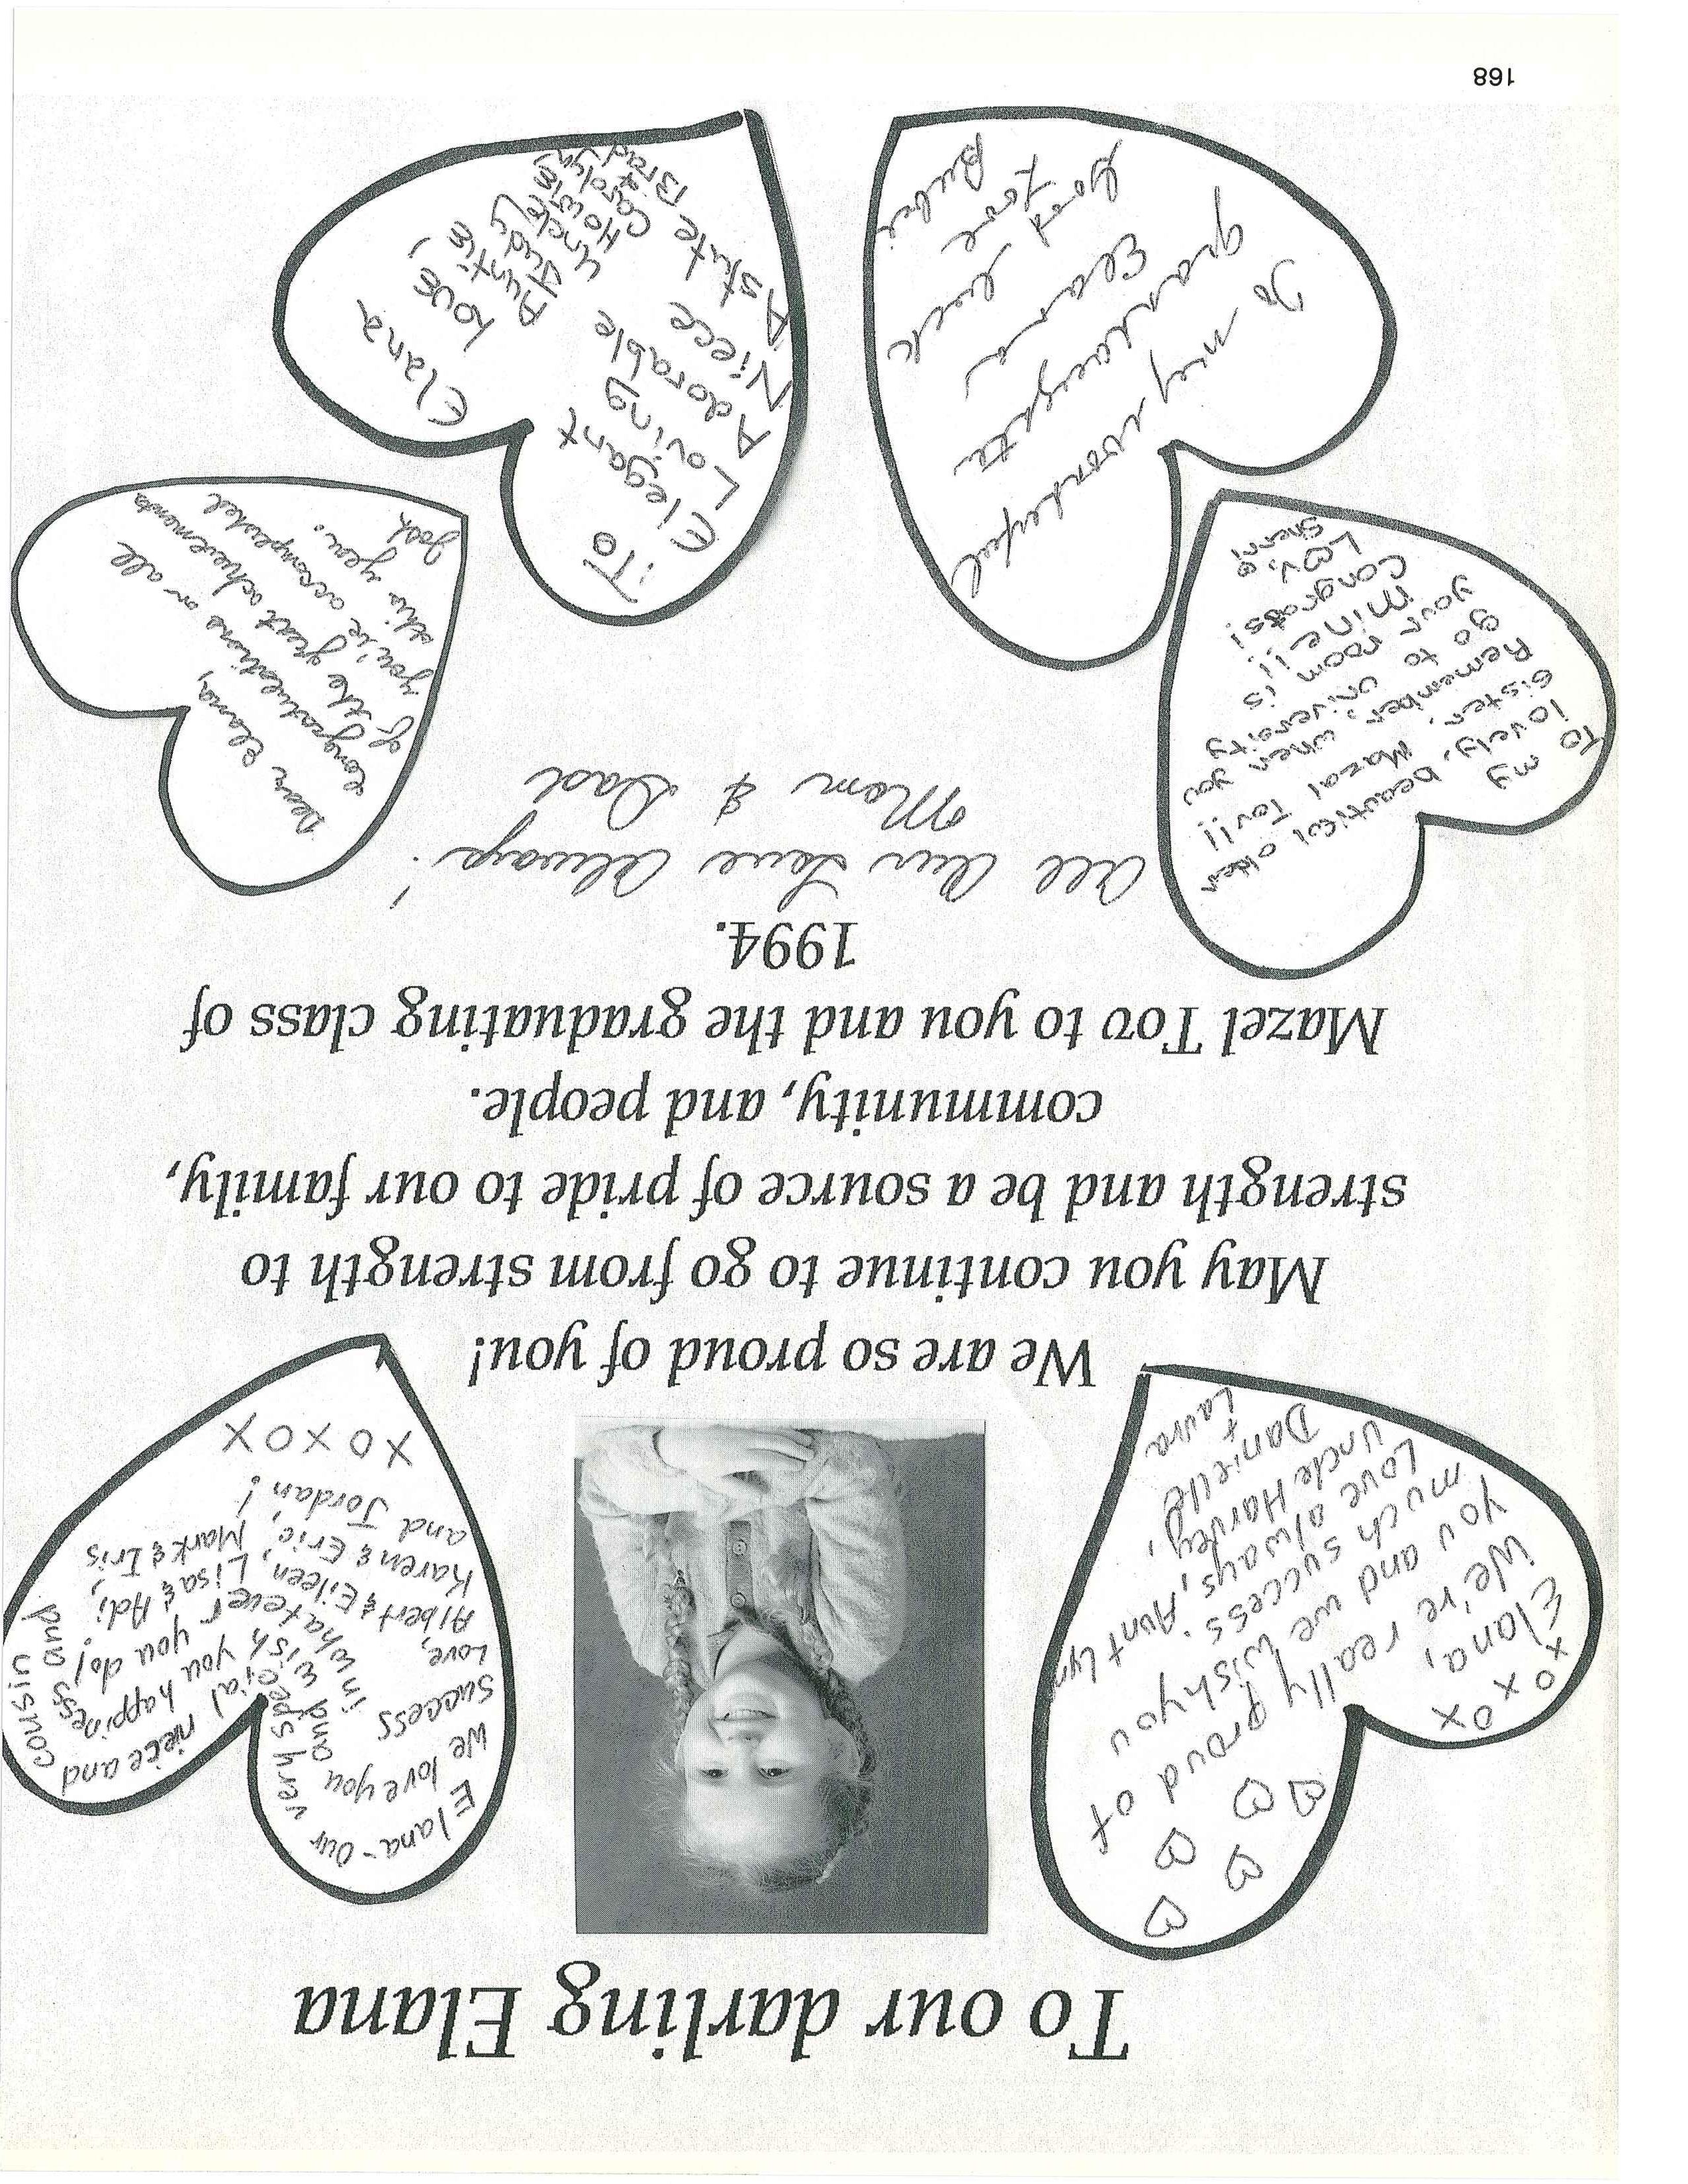 To our darling Elana
xoxox
Elana,
We're really proud of
you and we wish you
much success.
Love always, Aunt Lyn
Uncle Harvey,
Danielle,
Laura
Elana - our very special niece and cousin
We love you and wish you happiness and
success in whatever you do!
Love,
Albert & Eileen, Lisa & Adi,
Karen & Eric, Mark & Iris
and Jordan!
XOXOX
We are so proud of you!
May you continue to go from strength to
strength and be a source of pride to our family,
community, and people.
Mazel Tov to you and the graduating class of
1994.
All Our Love Always!
Mom & Dad
To my
lovely, beautiful older
sister, Mazal Tov!!
Remember, when you
go to university
your room is
mine!!!
Congrats!
Lov,
Sherri
Dear Elana,
Congratulations on all
of the great achievements
you've accomplished
this year.
Josh
To my wonderful
grandaughter
Elana
Good luck
Love
Bubie
To:
Elegant
Loving
Adorable
Niece
Astute
Elana
Love,
Auntie
Judy
Uncle
Howie,
Carolyn
&
Brad
168